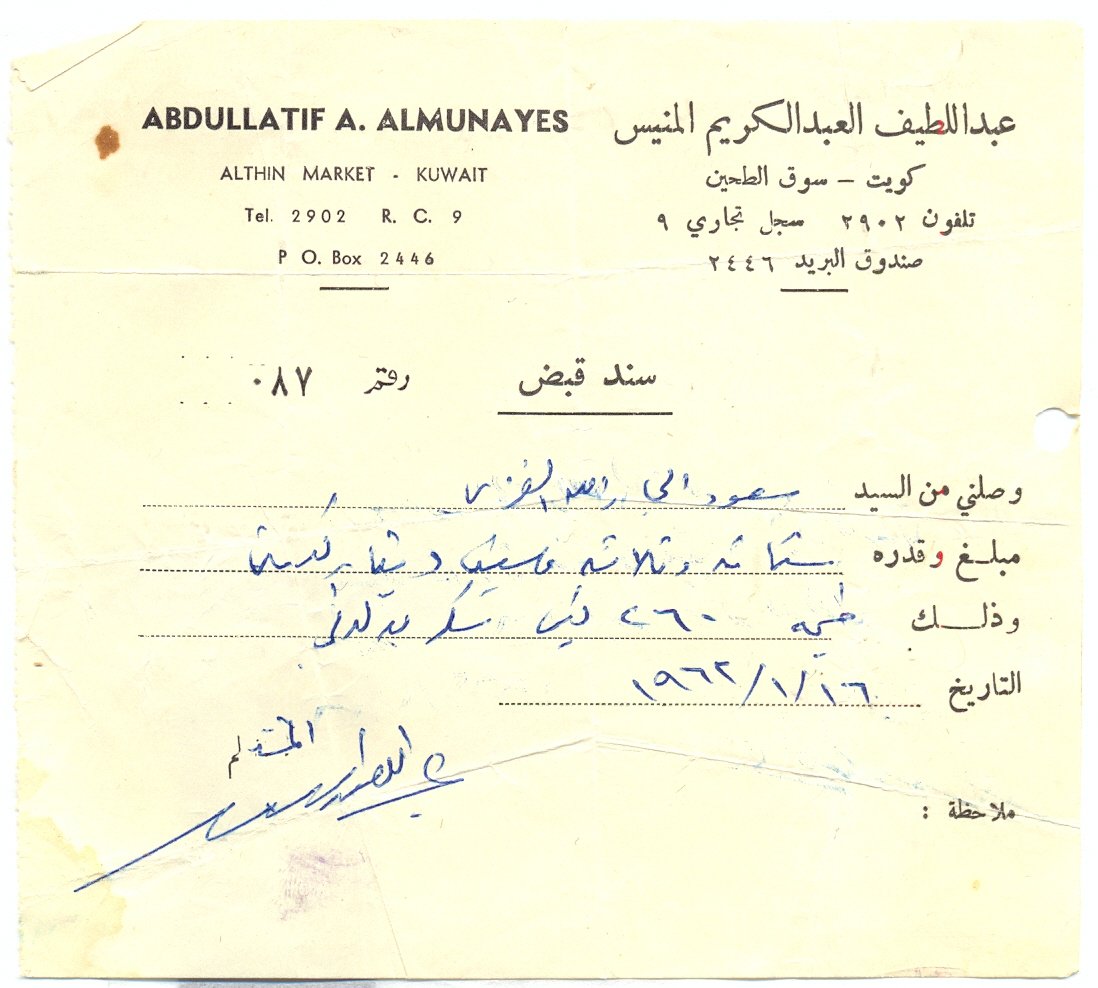 ABDULLATIF A. ALMUNAYES
ALTHIN MARKET - KUWAIT
Tel. 2902 R. C. 9
P O. Box 2446
عبداللطيف العبدالكريم المنيس
كويت – سوق الطحين
تلفون ٢٩٠٢ سجل تجاري ٩
صندوق البريد ٢٤٤٦
سند قبض
رقم ٠٨٧
وصلني من السيد سعود
مبلغ وقدره ستمائة وثلاثة
وذلك ٢٦٠ سكر
التاريخ ١٩٦٢/١/١٦
المستلم
ملاحظة :